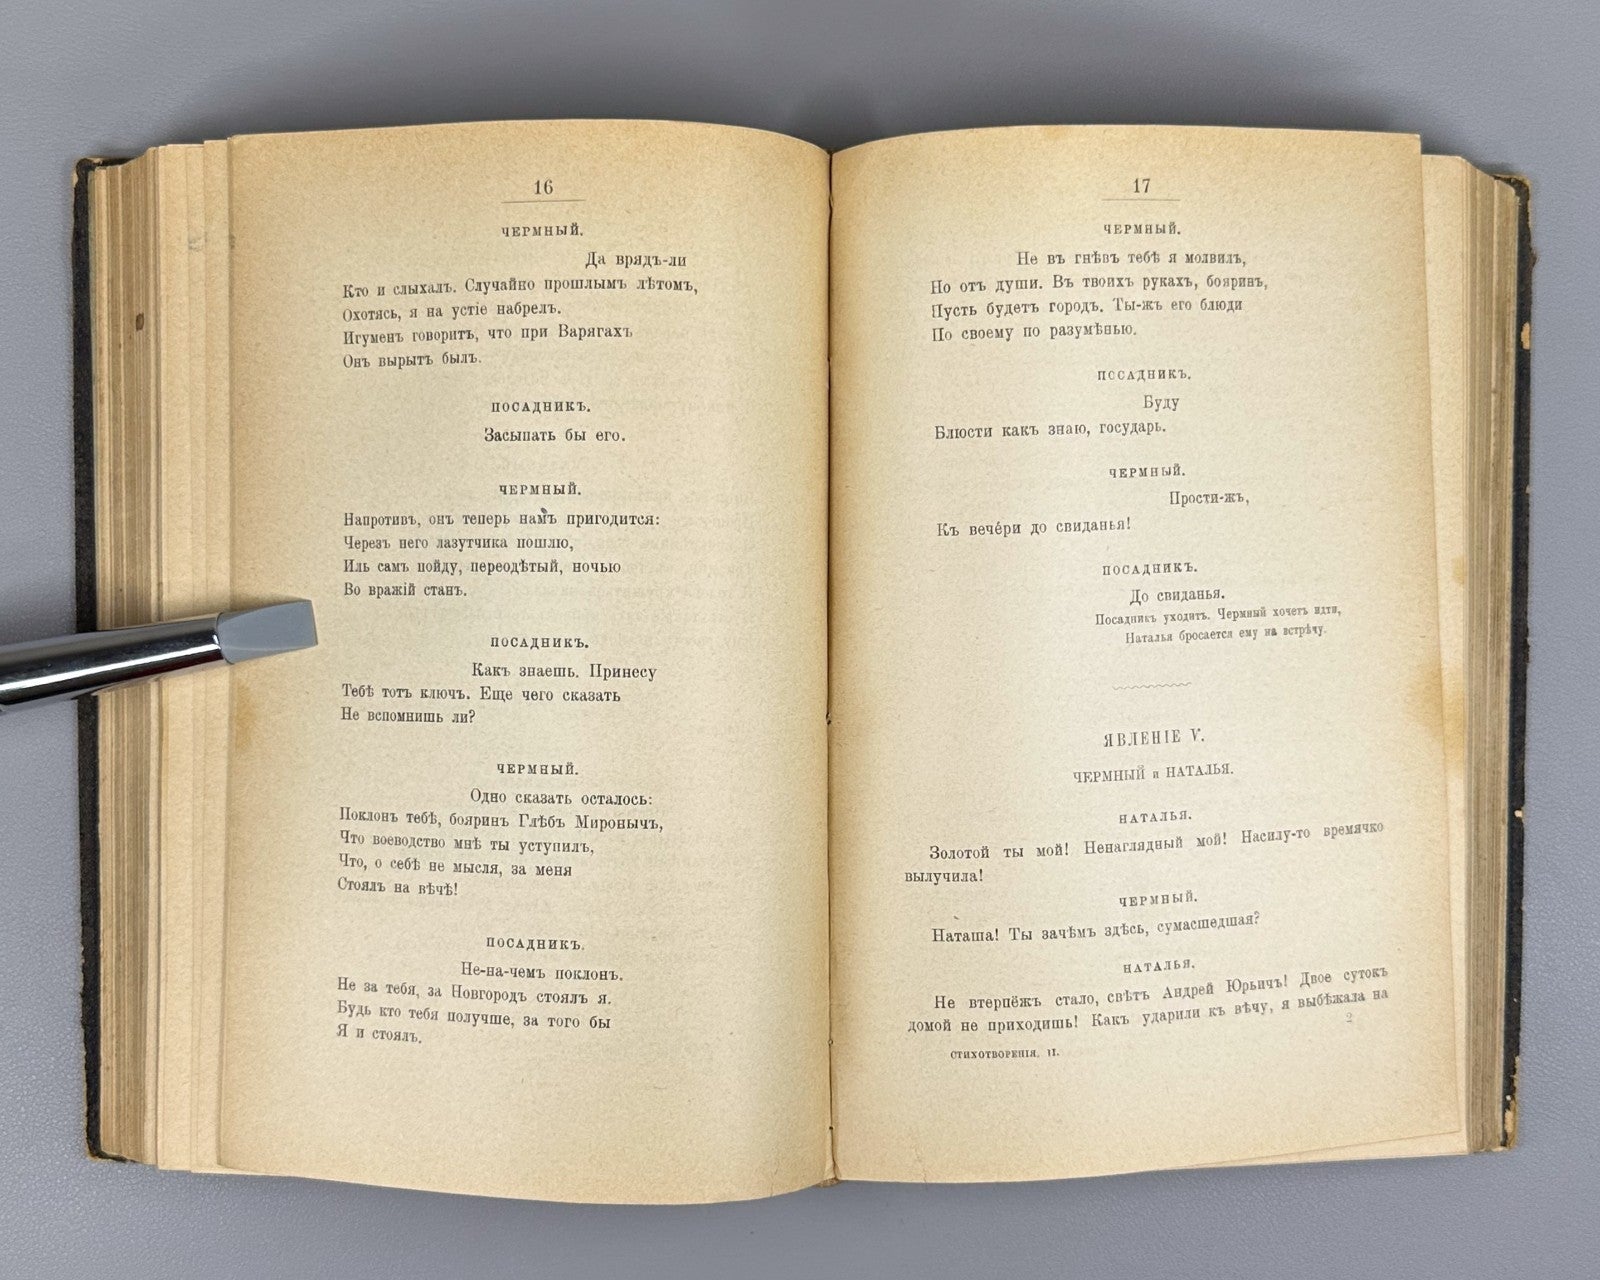 16
ЧЕРМНЫЙ.
Да врядъ-ли
Кто и слыхалъ. Случайно прошлымъ лѣтомъ,
Охотясь, я на устіе набрелъ.
Игуменъ говоритъ, что при Варягахъ
Онъ вырытъ былъ.
ПОСАДНИКЪ.
Засыпать бы его.
ЧЕРМНЫЙ.
Напротивъ, онъ теперь намъ пригодится:
Черезъ него лазутчика пошлю,
Иль самъ пойду, переодѣтый, ночью
Во вражій станъ.
ПОСАДНИКЪ.
Какъ знаешь. Принесу
Тебѣ тотъ ключъ. Еще чего сказать
Не вспомнишь ли?
ЧЕРМНЫЙ.
Одно сказать осталось:
Поклонъ тебѣ, бояринъ Глѣбъ Миронычъ,
Что воеводство мнѣ ты уступилъ,
Что, о себѣ не мысля, за меня
Стоялъ на вѣчѣ!
ПОСАДНИКЪ.
Не-на-чемъ поклонъ.
Не за тебя, за Новгородъ стоялъ я.
Будь кто тебя получше, за того бы
Я и стоялъ.
17
ЧЕРМНЫЙ.
Не въ гнѣвъ тебѣ я молвилъ,
Но отъ души. Въ твоихъ рукахъ, бояринъ,
Пусть будетъ городъ. Ты-жъ его блюди
По своему по разумѣнью.
ПОСАДНИКЪ.
Буду
Блюсти какъ знаю, государь.
ЧЕРМНЫЙ.
Прости-жъ,
Къ вече́ри до свиданья!
ПОСАДНИКЪ.
До свиданья.
Посадникъ уходитъ. Чермный хочетъ идти,
Наталья бросается ему на встрѣчу.
ЯВЛЕНІЕ V.
ЧЕРМНЫЙ и НАТАЛЬЯ.
НАТАЛЬЯ.
Золотой ты мой! Ненаглядный мой! Насилу-то времячко
вылучила!
ЧЕРМНЫЙ.
Наташа! Ты зачѣмъ здѣсь, сумасшедшая?
НАТАЛЬЯ.
Не втерпёжъ стало, свѣтъ Андрей Юрьичъ! Двое сутокъ
домой не приходишь! Какъ ударили къ вѣчу, я выбѣжала на
СТИХОТВОРЕНІЯ, II.
2